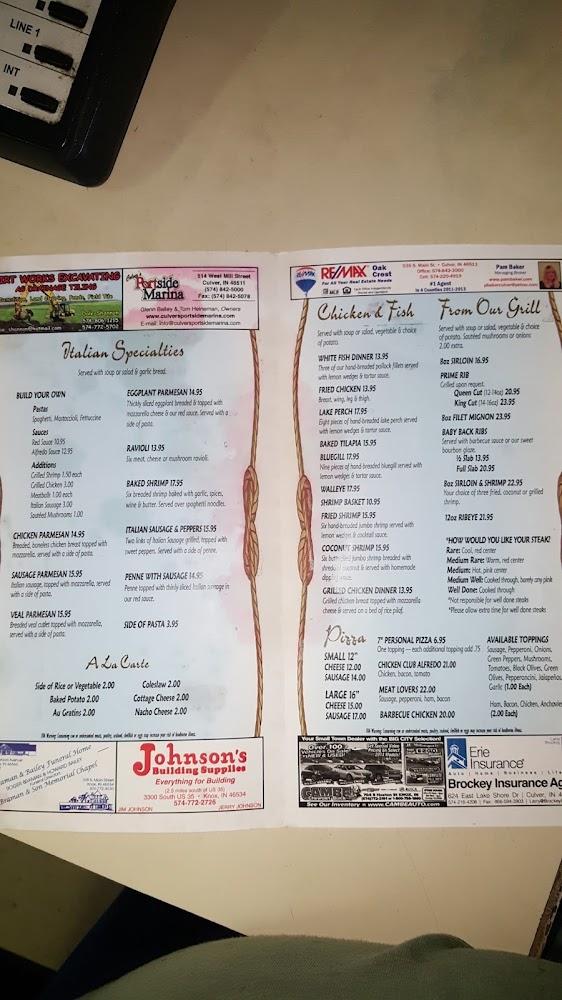 LINE 1
INT
WORKS EXCAVATING
TILING
574-772-5702
Culver's
Portside
Marina
514 West Mill Street
Culver, IN 46511
(574) 842-5000
Fax: (574) 842-5078
Glenn Bailey & Tom Heineman, Owners
www.culversportsidemarina.com
E-mail: info@culversportsidemarina.com
Italian Specialties
Served with soup or salad & garlic bread.
BUILD YOUR OWN
Pastas
Spaghetti, Mostaccioli, Fettuccine
Sauces
Red Sauce 10.95
Alfredo Sauce 12.95
Additions
Grilled Shrimp 1.50 each
Grilled Chicken 3.00
Meatballs 1.00 each
Italian Sausage 3.00
Sautéed Mushrooms 1.00
CHICKEN PARMESAN 14.95
Breaded, boneless chicken breast topped with
mozzarella, served with a side of pasta.
SAUSAGE PARMESAN 15.95
Italian sausage, topped with mozzarella, served
with a side of pasta.
VEAL PARMESAN 15.95
Breaded veal cutlet topped with mozzarella,
served with a side of pasta.
EGGPLANT PARMESAN 14.95
Thickly sliced eggplant breaded & topped with
mozzarella cheese & our red sauce. Served with a
side of pasta.
RAVIOLI 13.95
Six meat, cheese or mushroom ravioli.
BAKED SHRIMP 17.95
Six breaded shrimp baked with garlic, spices,
wine & butter. Served over spaghetti noodles.
ITALIAN SAUSAGE & PEPPERS 15.95
Two links of Italian Sausage grilled, topped with
sweet peppers. Served with a side of penne.
PENNE WITH SAUSAGE 14.95
Penne topped with thinly sliced Italian sausage in
our red sauce.
SIDE OF PASTA 3.95
A La Carte
Side of Rice or Vegetable 2.00
Baked Potato 2.00
Au Gratins 2.00
Coleslaw 2.00
Cottage Cheese 2.00
Nacho Cheese 2.00
Bailey Funeral Home
& Son Memorial Chapel
Johnson's
Building Supplies
Everything for Building
(2.5 miles south of US 35)
3300 South US 35 • Knox, IN 46534
574-772-2726
JIM JOHNSON
JERRY JOHNSON
RE/MAX
RE/MAX Oak
Crest
For All Your Real Estate Needs
MLS
535 S. Main St. • Culver, IN 46511
Office: 574-842-3000
Cell: 574-220-4919
#1 Agent
in 4 Counties 2011-2013
Pam Baker
Managing Broker
www.pamibaker.com
Chicken & Fish
Served with soup or salad, vegetable & choice
of potato.
WHITE FISH DINNER 13.95
Three of our hand-breaded pollock fillets served
with lemon wedges & tartar sauce.
FRIED CHICKEN 13.95
Breast, wing, leg & thigh.
LAKE PERCH 17.95
Eight pieces of hand-breaded lake perch served
with lemon wedges & tartar sauce.
BAKED TILAPIA 15.95
BLUEGILL 17.95
Nine pieces of hand-breaded bluegill served with
lemon wedges & tartar sauce.
WALLEYE 17.95
SHRIMP BASKET 10.95
FRIED SHRIMP 15.95
Six hand-breaded jumbo shrimp served with
lemon wedges & cocktail sauce.
COCONUT SHRIMP 15.95
Six butterflied jumbo shrimp breaded with
shredded coconut & served with homemade
sauce.
GRILLED CHICKEN DINNER 13.95
Grilled chicken breast topped with mozzarella
cheese & served on a bed of rice pilaf.
From Our Grill
Served with soup or salad, vegetable & choice
of potato. Sautéed mushrooms or onions
2.00 extra
8oz SIRLOIN 16.95
PRIME RIB
Grilled upon request.
Queen Cut (12-14oz) 20.95
King Cut (14-16oz) 23.95
8oz FILET MIGNON 23.95
BABY BACK RIBS
Served with barbecue sauce or our sweet
bourbon glaze.
½ Slab 13.95
Full Slab 20.95
8oz SIRLOIN & SHRIMP 22.95
Your choice of three fried, coconut or grilled
shrimp.
12oz RIBEYE 21.95
*HOW WOULD YOU LIKE YOUR STEAK?
Rare: Cool, red center
Medium Rare: Warm, red center
Medium: Hot, pink center
Medium Well: Cooked through, barely any pink
Well Done: Cooked through
*Not responsible for well done steaks
*Please allow extra time for well done steaks
Pizza
SMALL 12"
CHEESE 12.00
SAUSAGE 14.00
LARGE 16"
CHEESE 15.00
SAUSAGE 17.00
7" PERSONAL PIZZA 6.95
One topping — each additional topping add .75
CHICKEN CLUB ALFREDO 21.00
Chicken, bacon, tomato
MEAT LOVERS 22.00
Sausage, pepperoni, ham, bacon
BARBECUE CHICKEN 20.00
AVAILABLE TOPPINGS
Sausage, Pepperoni, Onions,
Green Peppers, Mushrooms,
Tomatoes, Black Olives, Green
Olives, Pepperoncini, Jalapeños,
Garlic (1.00 Each)
Ham, Bacon, Chicken, Anchovies
(2.00 Each)
Your Small Town Dealer with the BIG CITY Selection!
Over 100
NEW & USED!
CAMBE
See Our Inventory • WWW.CAMBEAUTO.COM
Erie
Insurance®
Auto | Home | Business | Life
Brockey Insurance Ag
624 East Lake Shore Dr | Culver, IN 4